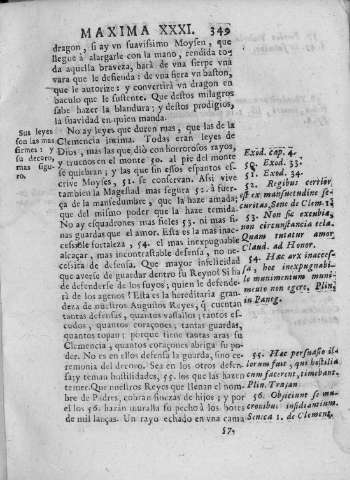 MAXIMA XXXI. 349
dragon, si ay vn suavissimo Moysen, que
llegue à alargarle con la mano, rendida to-
da aquella braveza, harà de vna sierpe vna
vara que le defienda: de vna fiera vn baston,
que le autorize: y convertirà vn dragon en
baculo que le sustente. Que destos milagros
sabe hazer la blandura; y destos prodigios,
la suavidad en quien manda.
No ay leyes que duren mas, que las de la
Clemencia intima. Todas eran leyes de
Dios, mas las que diò con horrorosos rayos,
y truenos en el monte 50. al pie del monte
se quiebran; y las que sin essos espantos es-
crive Moyses, 51. se conservan. Assi vive
tambien la Magestad mas segura 52. à fuer-
ça de la mansedumbre, que la haze amada;
que del mismo poder que la haze temida.
No ay esquadrones mas fieles 53. ni mas fi-
nas guardas que el amor. Esta es la mas inac-
cessible fortaleza, 54. el mas inexpugnable
alcaçar, mas incontrastable defensa, no ne-
cessita de defensa. Que mayor infelicidad
que averse de guardar dentro su Reyno! Si ha
de defenderse de los suyos, quien le defende-
rà de los agenos? Esta es la hereditaria gran-
deza de nuestros Augustos Reyes, q̃ cuentan
tantas defensas, quantos vassallos; tantos es-
cudos, quantos coraçones; tantas guardas,
quantos topan: porque tiene tantas aras su
Clemencia, quantos coraçones abriga su po-
der. No es en ellos defensa la guarda, sino ce-
remonia del decoro. Sea en los otros defen-
sa, y teman hostilidades, 55. los que las hazen
temer: Que nuestros Reyes que llenan el nom-
bre de Padres, cobran finezas de hijos; y por
el los 56. haràn muralla su pecho à los botes
de mil lanças. Un rayo echado en vna cama
57.
Sus leyes
son las mas
firmes: y
su decoro,
mas segu-
ro.
Exod. cap. 4.
50. Exod. 33.
51. Exod. 34.
52. Regibus certior
est ex mansuetudine se-
curitas, Senc de Clem. 1.
53. Non sic excubia,
non circunstantia tela.
Quam tutatur amor.
Claud. ad Honor.
54. Hæc arx inacces-
sa, hoc inexpugnabi-
le munimentum muni-
mento non egere, Plin.
in Paneg.
55. Hac persuasio il-
lorum fuit, qui hostilia
cum facerent, timebant.
Plin. Trajan
56. Obijciunt se mu-
cronibus insidiantium.
Seneca 1. de Clement.